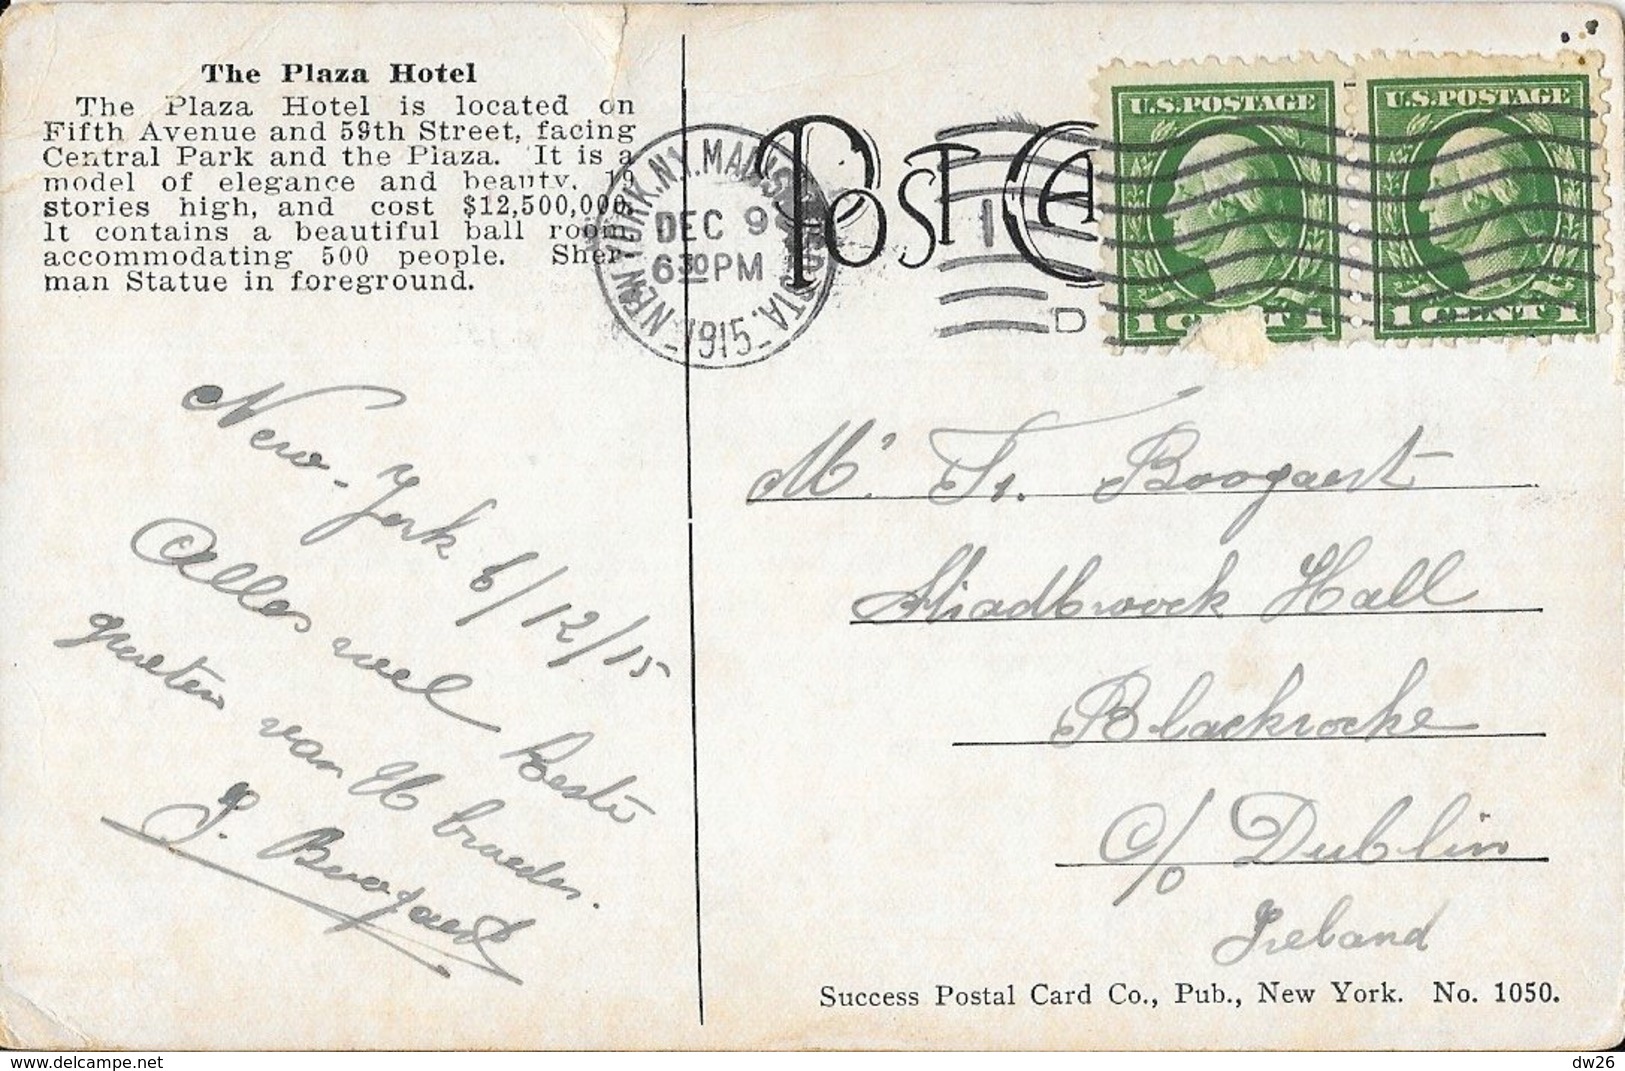 The Plaza Hotel
The Plaza Hotel is located on
Fifth Avenue and 59th Street, facing
Central Park and the Plaza. It is a
model of elegance and beauty, 19
stories high, and cost $12,500,000.
It contains a beautiful ball room,
accommodating 500 people. Sher-
man Statue in foreground.
POST CA
U.S. POSTAGE
1 CENT 1
U.S. POSTAGE
1 CENT 1
NEW YORK, N.Y. MADISON SQ. STA.
DEC 9
6 30 PM
1915
1
D
New-York 6/12/15
Alles wel beste
groeten van
broeder.
Boogaert
Mr. Fr. Boogaert
Hall
Blackrocke
c/o Dublin
Ireland
Success Postal Card Co., Pub., New York. No. 1050.
dw26